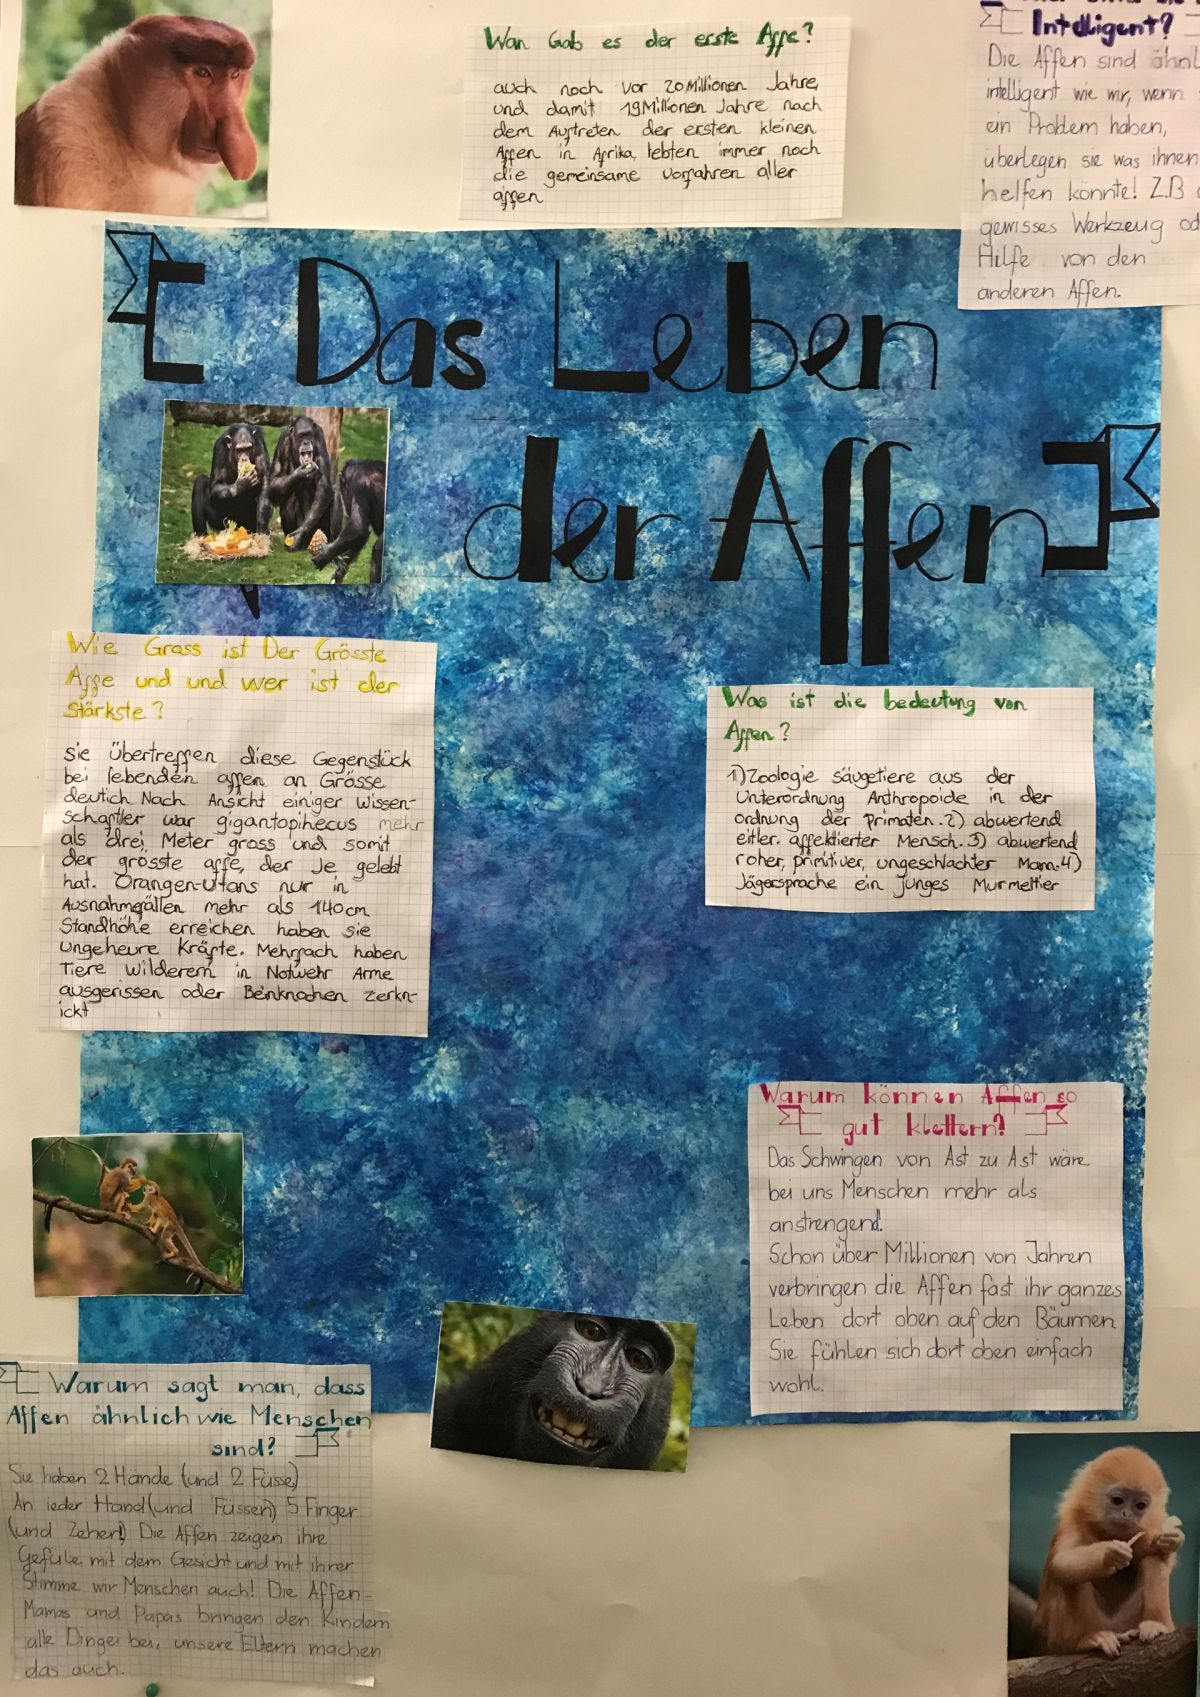 Wan Gab es der erste Affe?
auch noch vor 20 Millionen Jahre,
und damit 19 Millionen Jahre nach
dem Auftreten der ersten kleinen
Affen in Afrika, lebten immer noch
die gemeinsame vorfahren aller
affen
Intelligent?
Die Affen sind ähnl
intelligent wie wir, wenn
ein Problem haben,
überlegen sie was ihnen
helfen könnte! Z.B
gewisses Werkzeug od
Hilfe von den
anderen Affen.
Das Leben
der Affen
Wie Gross ist Der Grösste
Affe und und wer ist der
Stärkste?
sie übertreffen diese Gegenstück
bei lebenden affen an Grösse
deutich Nach Ansicht einiger Wissen-
schaftler war gigantopihecus mehr
als drei Meter gross und somit
der grösste affe, der Je gelebt
hat. Orangen-Utans nur in
Ausnahmefällen mehr als 140cm
Standhöhe erreichen haben sie
Ungeheure Kräfte. Mehrfach haben
Tiere Wilderern in Notwehr Arme
ausgerissen oder Beinknochen zerkn-
ickt
Was ist die bedeutung von
Affen?
1) Zoologie säugetiere aus der
Unterordnung Anthropoide in der
ordnung der Primaten. 2) abwertend
eitler. affektierter Mensch. 3) abwertend
roher, primitiver, ungeschlachter Mann. 4)
Jägersprache ein junges Murmeltier
Warum können Affen so
gut klettern?
Das Schwingen von Ast zu Ast wäre
bei uns Menschen mehr als
anstrengend!
Schon über Millionen von Jahren
verbringen die Affen fast ihr ganzes
Leben dort oben auf den Bäumen
Sie fühlen sich dort oben einfach
wohl.
Warum sagt man, dass
Affen ähnlich wie Menschen
sind?
Sie haben 2 Hände (und 2 Füsse)
An jeder Hand (und Füssen) 5 Finger
(und Zehen!) Die Affen zeigen ihre
Gefüle mit dem Gesicht und mit ihrer
Stimme wir Menschen auch! Die Affen-
Mamas und Papas bringen den Kindern
alle Dinge bei, unsere Eltern machen
das auch.